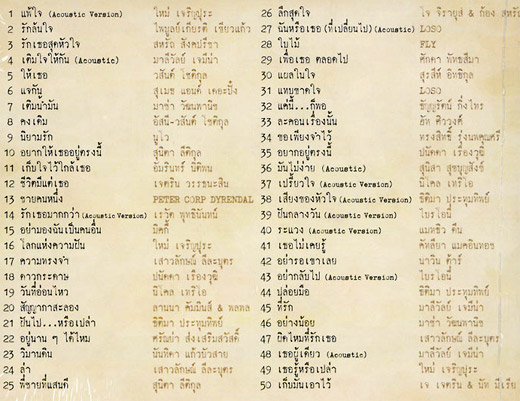 1 แพ้ใจ (Acoustic Version) ใหม่ เจริญปุระ
2 รักล้นใจ ไพบูลย์เกียรติ เขียวแก้ว
3 รักเธอสุดหัวใจ สหรัถ สังคปรีชา
4 เติมใจให้กัน (Acoustic) มาลีวัลย์ เจมีน่า
5 ให้เธอ วสันต์ โชติกุล
6 แจกัน สุเมธ แอนด์ เดอะปั๋ง
7 เติมน้ำมัน มาช่า วัฒนพานิช
8 คงเดิม อัสนี-วสันต์ โชติกุล
9 นิยามรัก นูโว
10 อยากให้เธออยู่ตรงนี้ สุนิตา ลีติกุล
11 เก็บใจไว้ใกล้เธอ อัมรินทร์ นิติพน
12 ชีวิตมีแต่เธอ เจตริน วรรธนะสิน
13 ชายคนหนึ่ง PETER CORP DYRENDAL
14 รักเธอมากกว่า (Acoustic Version) เรวัต พุทธินันทน์
15 อย่ามองฉันเป็นคนอื่น มิคกี้
16 โลกแห่งความฝัน ใหม่ เจริญปุระ
17 ความทรงจำ เสาวลักษณ์ ลีละบุตร
18 ดาวกระดาษ ปนัดดา เรืองวุฒิ
19 วันที่อ่อนไหว นิโคล เทริโอ
20 สัญญากาสะลอง ลานนา คัมมินส์ &
21 ฝันไป...หรือเปล่า ธิติมา ประทุมทิพย์
22 อยู่นาน ๆ ได้ไหม ศรัณย่า ส่งเสริมสวัสดิ์
23 วิมานดิน นันทิดา แก้วบัวสาย
24 ล่ำ เสาวลักษณ์ ลีละบุตร
25 พี่ชายที่แสนดี สุนิตา ลีติกุล
26 ลึกสุดใจ โจ จิรายุส & ก้อง สหรัถ
27 ฉันหรือเธอ (ที่เปลี่ยนไป) (Acoustic) LOSO
28 ใบไม้ FLY
29 เพื่อเธอ ตลอดไป ศักดา พัทธสีมา
30 แผลในใจ สุรสีห์ อิทธิกุล
31 แทบขาดใจ LOSO
32 แค่นี้...ก็พอ ธัญญรัตน์ ถิ่งไทร
33 ละครเรื่องนั้น
34 ขอเพียงจำไว้ ทรงสิทธิ์ รุ่งนพคุณศรี
35 อยากอยู่ตรงนี้ ปนัดดา เรืองวุฒิ
36 มันไม่ง่าย (Acoustic) สุนิสา สุขบุญสังข์
37 เปรี้ยวใจ (Acoustic Version) นิโคล เทริโอ
38 เสียงของหัวใจ (Acoustic Version) ธิติมา ประทุมทิพย์
39 ฝันกลางวัน (Acoustic Version) ไบรโอนี่
40 ระแวง (Acoustic Version) แมทธิว ดีน
41 เธอไม่เคยรู้ คัทลียา แมคอินทอช
42 อย่ารอเขาเลย นาวิน ต้าร์
43 อย่ากลับไป (Acoustic Version) ไบรโอนี่
44 ปล่อยมือ ธิติมา ประทุมทิพย์
45 ที่รัก มาลีวัลย์ เจมีน่า
46 อย่างน้อย มาช่า วัฒนพานิช
47 ผิดไหมที่รักเธอ เสาวลักษณ์ ลีละบุตร
48 เธอผู้เดียว (Acoustic) มาลีวัลย์ เจมีน่า
49 เธอรู้หรือเปล่า ใหม่ เจริญปุระ
50 เก็บมันเอาไว้ เจ เจตริน & นัท มีเรีย